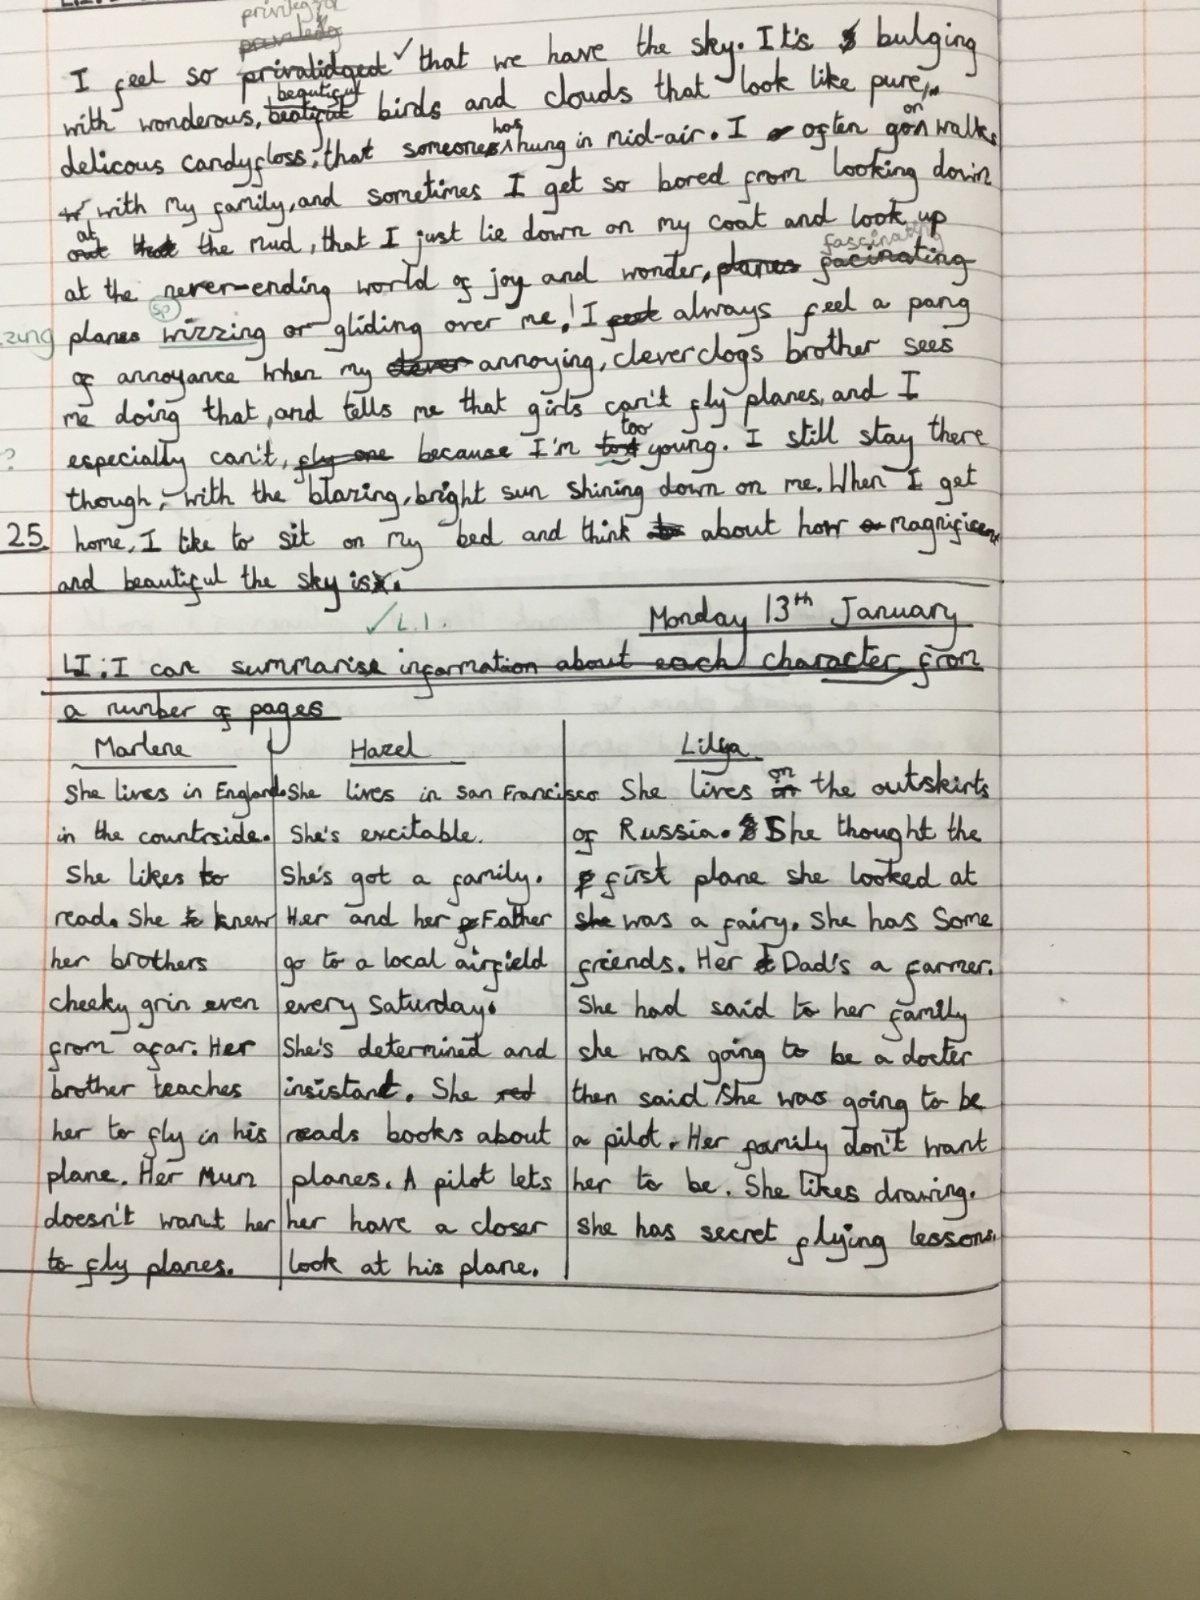 privileged
I feel so privalidged ✓ that we have the sky. It's bulging
beautiful
with wonderous, beatifut birds and clouds that look like pure,
has
on
delicous candyfloss, that someones hung in mid-air. I often go walks
with my family, and sometimes I get so bored from looking down
at
out that the mud, that I just lie down on my coat and look up
fascinating
at the never-ending world of joy and wonder, planes facinating
sp
zzing planes wizzing or gliding over me! I always feel a pang
of annoyance when my clever annoying, cleverclogs brother sees
me doing that, and tells me that girls can't fly planes, and I
too
? especially can't, fly one because I'm young. I still stay there
though, with the blazing, bright sun shining down on me. When I get
25 home, I like to sit on my bed and think about how magnificent
and beautiful the sky is.
✓ L.I.
Monday 13th January
LI: I can summarise information about each character from
a number of pages
Marlene
She lives in England
in the countrside.
She likes to
read. She knew
her brothers
cheeky grin even
from afar. Her
brother teaches
her to fly in his
plane. Her Mum
doesn't want her
to fly planes.
Hazel
She lives in San Francisco
She's excitable.
She's got a family.
Her and her Father
go to a local airfield
every Saturday.
She's determined and
insistant. She red
reads books about
planes. A pilot lets
her have a closer
look at his plane.
Lilya
on
She lives the outskirts
of Russia. She thought the
first plane she looked at
she was a fairy. She has Some
friends. Her Dad's a farmer.
She had said to her family
she was going to be a docter
then said She was going to be
a pilot. Her family don't want
her to be. She likes drawing.
She has secret flying lessons.